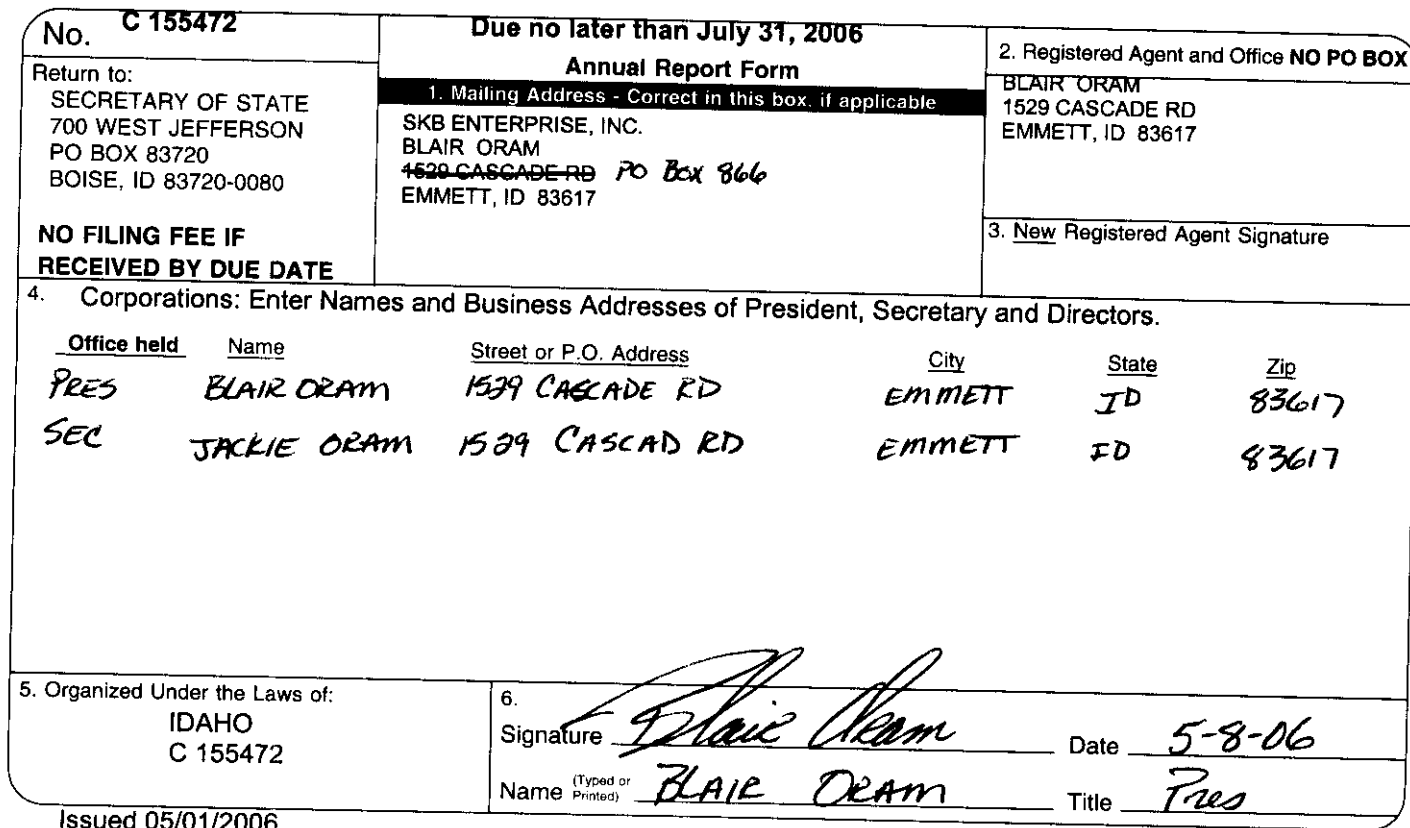 No. C 155472
Return to:
SECRETARY OF STATE
700 WEST JEFFERSON
PO BOX 83720
BOISE, ID 83720-0080
NO FILING FEE IF
RECEIVED BY DUE DATE
Due no later than July 31, 2006
Annual Report Form
1. Mailing Address - Correct in this box, if applicable
SKB ENTERPRISE, INC.
BLAIR ORAM
1529 CASCADE RD PO Box 866
EMMETT, ID 83617
2. Registered Agent and Office NO PO BOX
BLAIR ORAM
1529 CASCADE RD
EMMETT, ID 83617
3. New Registered Agent Signature
4. Corporations: Enter Names and Business Addresses of President, Secretary and Directors.
Office held Name Street or P.O. Address City State Zip
PRES BLAIR ORAM 1529 CASCADE RD EMMETT ID 83617
SEC JACKIE ORAM 1529 CASCAD RD EMMETT ID 83617
5. Organized Under the Laws of:
IDAHO
C 155472
6.
Signature Blair Oram Date 5-8-06
Name (Typed or Printed) BLAIR ORAM Title Pres
Issued 05/01/2006